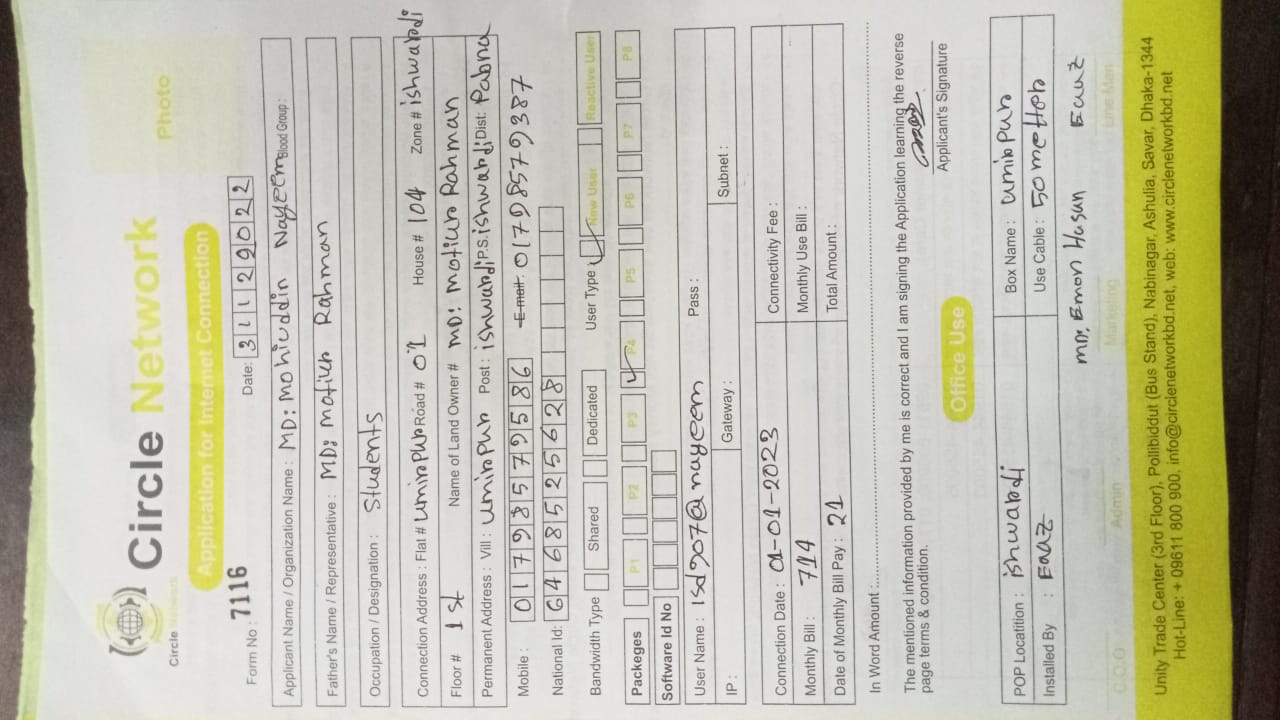 Circle Network
Circle Network
Photo
Application for Internet Connection
Form No : 7116 Date: 31122022
Applicant Name / Organization Name : MD: mohiuddin Nayeem Blood Group :
Father's Name / Representative : MD: matiur Rahman
Occupation / Designation : Students
Connection Address : Flat # Umirpur Road # 01 House # 104 Zone # ishwardi
Floor # 1st Name of Land Owner # MD: motiur Rahman
Permanent Address : Vill : Umirpur Post : ishwardi P.S. ishwardi Dist: Pabna
Mobile : 01798579586 E-mail: 01798579387
National Id: 6468525628
Bandwidth Type Shared Dedicated User Type New User Reactive User
Packeges P1 P2 P3 P4 P5 P6 P7 P8
Software Id No
User Name : isd907@nayeem Pass :
IP : Gateway : Subnet :
Connection Date : 01-01-2023 Connectivity Fee :
Monthly Bill : 714 Monthly Use Bill :
Date of Monthly Bill Pay : 21 Total Amount :
In Word Amount :
The mentioned information provided by me is correct and I am signing the Application learning the reverse
page terms & condition.
Applicant's Signature
Office Use
POP Locatition : ishwardi Box Name : Umirpur
Installed By : Eaaz Use Cable : 50 metter
MD: Emon Hasan Eaaz
C.O.O Admin Marketing Line Man
Unity Trade Center (3rd Floor), Pollibiddut (Bus Stand), Nabinagar, Ashulia, Savar, Dhaka-1344
Hot-Line: + 09611 800 900, info@circlenetworkbd.net, web: www.circlenetworkbd.net